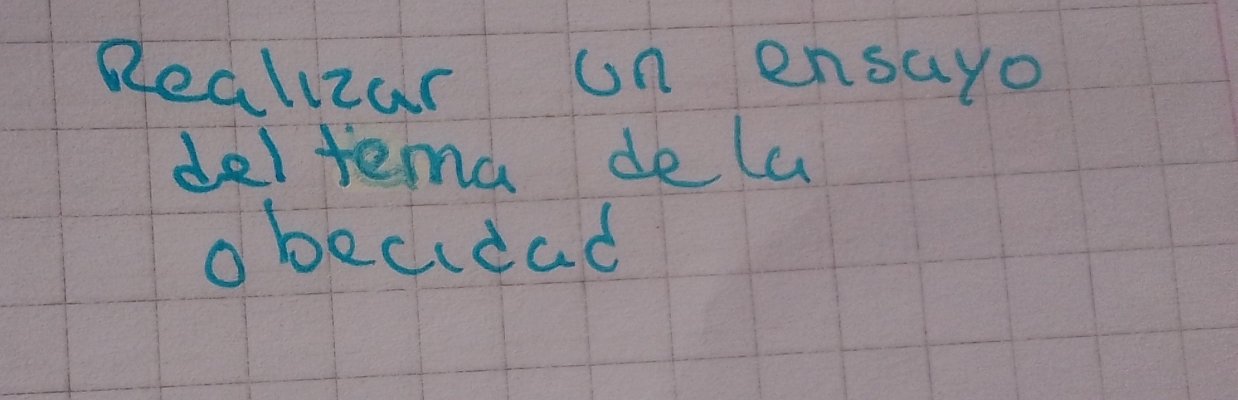 Realizar un ensayo
del tema de la
obecidad